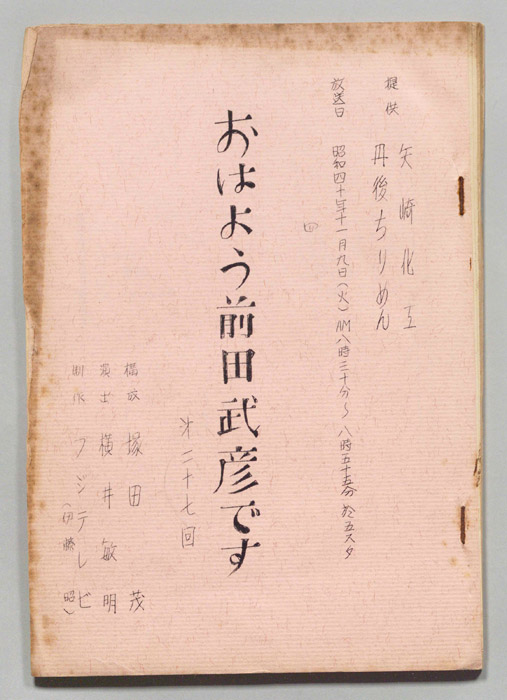 提供 矢崎化工
丹後ちりめん
放送日 昭和四十年十一月九日(火)AM八時三十分〜八時五十五分 於五スタ
四
おはよう前田武彦です
第二十七回
構成 塚田 茂
演出 横井敏明
制作 フジテレビ
(伊藤 昭)